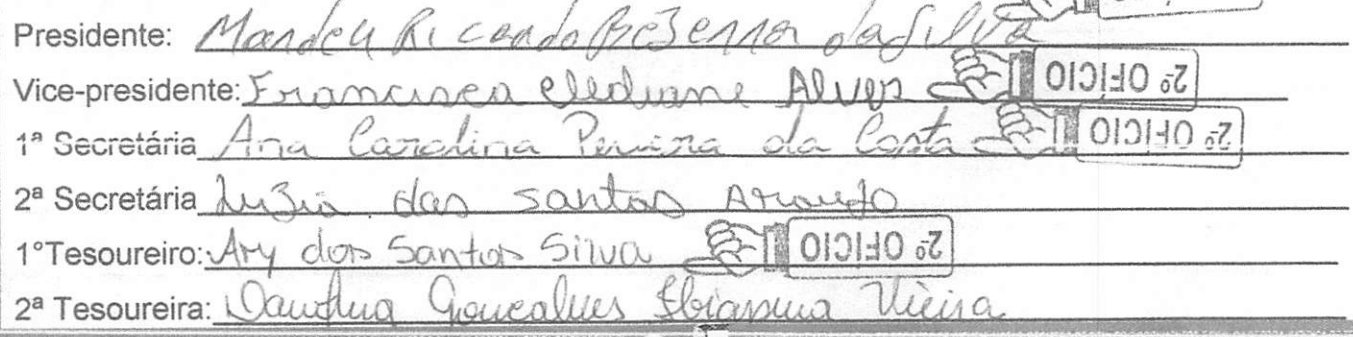 Presidente: Ricardo Bezerra da Silva
Vice-presidente: Francisca Alves 2º OFICIO
1ª Secretária Ana Carolina Pereira da Costa 2º OFICIO
2ª Secretária Luzia dos Santos Araujo
1ºTesoureiro: Ary dos Santos Silva 2º OFICIO
2ª Tesoureira: Gonçalves Vieira